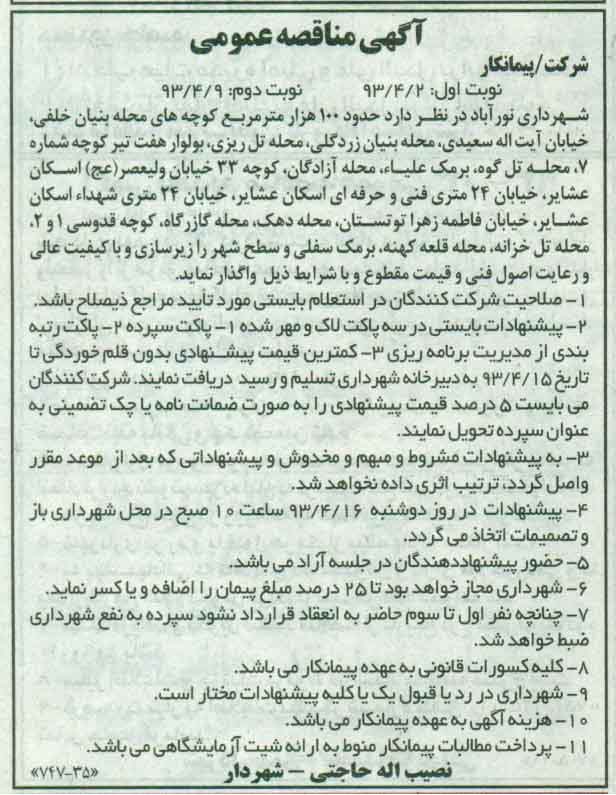 آگهی مناقصه عمومی
شرکت/پیمانکار
نوبت اول: ۹۳/۴/۲ نوبت دوم: ۹۳/۴/۹
شهرداری نورآباد در نظر دارد حدود ۱۰۰ هزار مترمربع کوچه های محله بنیان خلفی،
خیابان آیت اله سعیدی، محله بنیان زردگلی، محله تل ریزی، بولوار هفت تیر کوچه شماره
۷، محله تل گوه، برمک علیاء، محله آزادگان، کوچه ۳۳ خیابان ولیعصر(عج) اسکان
عشایر، خیابان ۲۴ متری فنی و حرفه ای اسکان عشایر، خیابان ۲۴ متری شهداء اسکان
عشایر، خیابان فاطمه زهرا توتستان، محله دهک، محله گازرگاه، کوچه قدوسی ۱ و ۲،
محله تل خزانه، محله قلعه کهنه، برمک سفلی و سطح شهر را زیرسازی و با کیفیت عالی
و رعایت اصول فنی و قیمت مقطوع و با شرایط ذیل واگذار نماید.
۱- صلاحیت شرکت کنندگان در استعلام بایستی مورد تأیید مراجع ذیصلاح باشد.
۲- پیشنهادات بایستی در سه پاکت لاک و مهر شده ۱- پاکت سپرده ۲- پاکت رتبه
بندی از مدیریت برنامه ریزی ۳- کمترین قیمت پیشنهادی بدون قلم خوردگی تا
تاریخ ۹۳/۴/۱۵ به دبیرخانه شهرداری تسلیم و رسید دریافت نمایند. شرکت کنندگان
می بایست ۵ درصد قیمت پیشنهادی را به صورت ضمانت نامه یا چک تضمینی به
عنوان سپرده تحویل نمایند.
۳- به پیشنهادات مشروط و مبهم و مخدوش و پیشنهاداتی که بعد از موعد مقرر
واصل گردد، ترتیب اثری داده نخواهد شد.
۴- پیشنهادات در روز دوشنبه ۹۳/۴/۱۶ ساعت ۱۰ صبح در محل شهرداری باز
و تصمیمات اتخاذ می گردد.
۵- حضور پیشنهاددهندگان در جلسه آزاد می باشد.
۶- شهرداری مجاز خواهد بود تا ۲۵ درصد مبلغ پیمان را اضافه و یا کسر نماید.
۷- چنانچه نفر اول تا سوم حاضر به انعقاد قرارداد نشود سپرده به نفع شهرداری
ضبط خواهد شد.
۸- کلیه کسورات قانونی به عهده پیمانکار می باشد.
۹- شهرداری در رد یا قبول یک یا کلیه پیشنهادات مختار است.
۱۰- هزینه آگهی به عهده پیمانکار می باشد.
۱۱- پرداخت مطالبات پیمانکار منوط به ارائه شیت آزمایشگاهی می باشد.
نصیب اله حاجتی - شهردار «۷۴۷-۳۵»